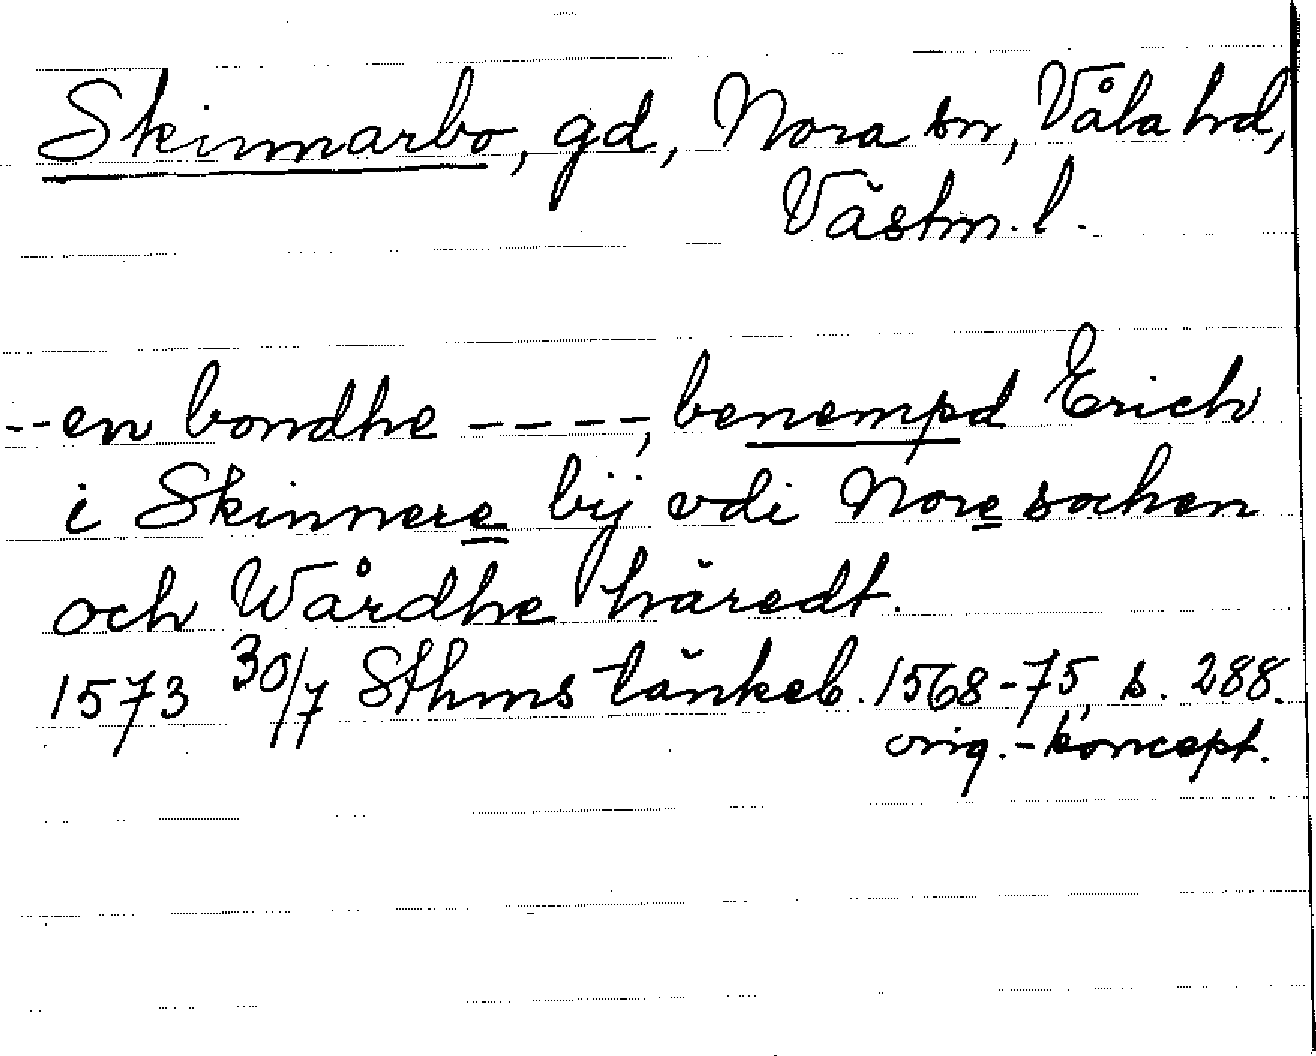 Skinnarbo, gd, Nora sn, Våla hd,
Västm. l.
-- en bondhe ----, benempd Erich
i Skinnere bij vdi Nore sochen
och Wårdhe häredt.
1573 30/7 Sthms tänkeb. 1568-75, s. 288.
orig.-koncept.